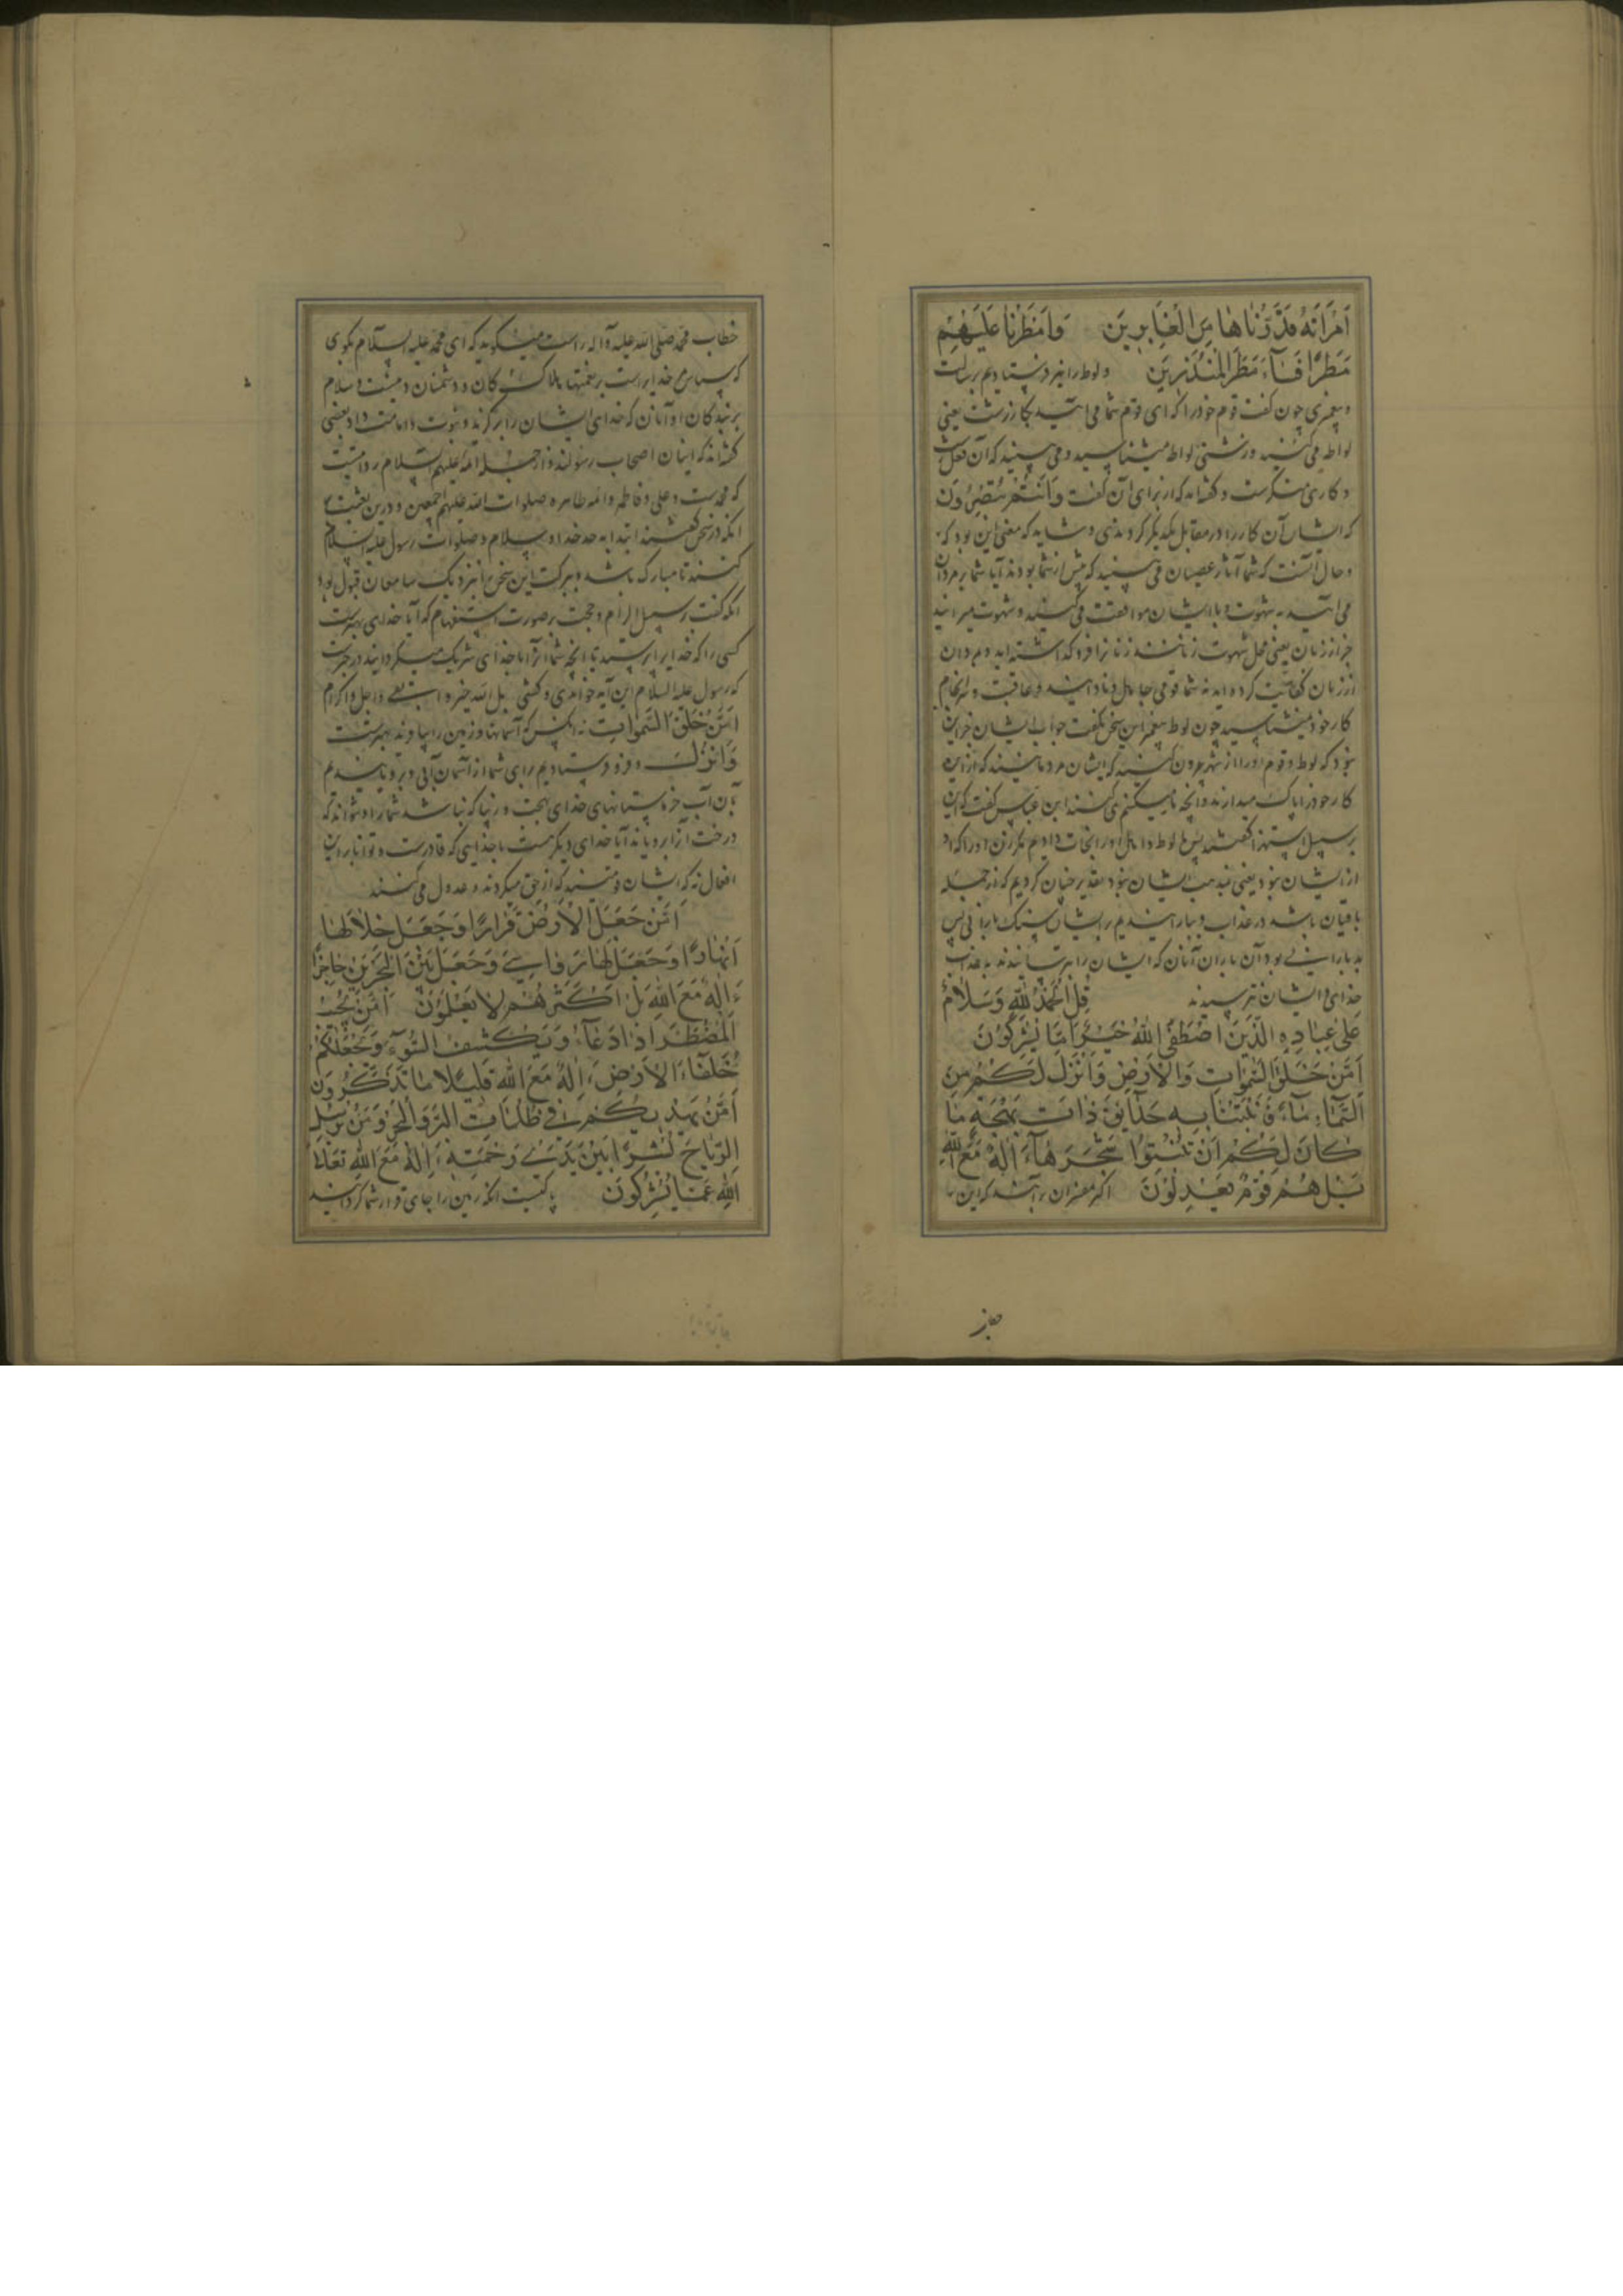 اَمْرَاَتَهُ قَدَّرْنَاهَا مِنَ الْغَابِرِينَ وَاَمْطَرْنَا عَلَيْهِمْ
مَطَرًا فَسَاءَ مَطَرُ الْمُنْذَرِينَ ولوط را نیز فرستادیم برسالت
و پیغمبری چون گفت قوم خود را که ای قوم شما می آئید بکار زشت یعنی
لواطه می کنید و زشتی لواط میشناسید و می بینید که آن فعل
و کاری منکرست و گفته اند که از برای آن گفت وَاَنْتُمْ تُبْصِرُونَ
که ایشان آن کار را در مقابل یکدیگر کردندی و شاید که معنی این بود که
و حال آنست که شما آثار عصیان می بینید که پیش از شما بودند آیا شما بمردان
می آئید به شهوت و با ایشان موافقت می کنید و شهوت میرانید
جز از زنان یعنی محل شهوت زنانند زنانرا فرو گذاشته اید و بمردان
از زنان کفایت کرده اید نه شما قومی جاهل و نادانید و عاقبت و سرانجام
کار خود میشناسید چون لوط پیغمبر این سخن بگفت جواب ایشان جز این
نبود که لوط و قوم او را از شهر بیرون کنید که ایشان مردمانیند که از این
کار خود را پاک میدارند و آنچه ما میکنیم نمی کنند ابن عباس گفت که این
بر سبیل استهزا گفتند پس ما لوط و اهل او را نجات دادیم مگر زن او را که او
از ایشان نبود یعنی بمذهب ایشان نبود تقدیر چنان کردیم که از جمله
باقیان باشد در عذاب و بارانیدیم بر ایشان سنگ بارانی پس
بد بارانی بود آن باران آنان که ایشان را بترسانیدند به عذاب
خدای و ایشان نترسیدند قُلِ الْحَمْدُ لِلّٰهِ وَسَلَامٌ
عَلٰى عِبَادِهِ الَّذِينَ اصْطَفٰى اللّٰهُ خَيْرٌ اَمَّا يُشْرِكُونَ
اَمَّنْ خَلَقَ السَّمٰوَاتِ وَالْاَرْضَ وَاَنْزَلَ لَكُمْ مِنَ
السَّمَاءِ مَاءً فَاَنْبَتْنَا بِهِ حَدَائِقَ ذَاتَ بَهْجَةٍ مَا
كَانَ لَكُمْ اَنْ تُنْبِتُوا شَجَرَهَا ءَاِلٰهٌ مَعَ اللّٰهِ
بَلْ هُمْ قَوْمٌ يَعْدِلُونَ اکثر مفسران برآنند که این
خطاب محمد صلی الله علیه و آله راست میگوید که ای محمد علیه السلام بگوی
که سپاس خدایراست بر نعمتها
برگزیدگان او آنان که خدای ایشان را برگزید و نبوت و امامت داد بعضی
گفته اند که اینان اصحاب رسولند و از ائمه علیهم السلام روایتست
که محمدست و علی و فاطمه و ائمه طاهره صلوات الله علیهم اجمعین و درین
آنکه در سخن گفتند ابتدا به حمد خدا و سلام و صلوات رسول علیه السلام
کنند تا مبارک باشد و ببرکت این سخن را نیز نزدیک سامعان قبول بود
آنکه گفت بر سبیل الزام و حجت بر صورت استفهام که آیا خدای بهترست
کسی را که خدایرا پرستید یا آنچه شما آنرا با خدای شریک میگردانید در خبرست
که رسول علیه السلام این آیه خواندی و گفتی بل الله خیر و ابقی و اجل و اکرم
اَمَّنْ خَلَقَ السَّمٰوَاتِ نه آنکس که آسمانها و زمین را بیافرید بهترست
وَاَنْزَلَ و فرو فرستادیم برای شما از آسمان آبی و برویانیدیم
بآن آب خرم بستانهای خدای بهجت و زیبا که نباشد شما را و نتوانید که
درخت آنرا برویانید آیا خدای دیگر هست با خدایی که قادرست و توانا بر این
افعال نه که ایشان قومیند که از حق میگردند و عدول می کنند
اَمَّنْ جَعَلَ الْاَرْضَ قَرَارًا وَجَعَلَ خِلَالَهَا
اَنْهَارًا وَجَعَلَ لَهَا رَوَاسِيَ وَجَعَلَ بَيْنَ الْبَحْرَيْنِ حَاجِزًا
ءَاِلٰهٌ مَعَ اللّٰهِ بَلْ اَكْثَرُهُمْ لَا يَعْلَمُونَ اَمَّنْ يُجِيبُ
الْمُضْطَرَّ اِذَا دَعَاهُ وَيَكْشِفُ السُّوءَ وَيَجْعَلُكُمْ
خُلَفَاءَ الْاَرْضِ ءَاِلٰهٌ مَعَ اللّٰهِ قَلِيلًا مَا تَذَكَّرُونَ
اَمَّنْ يَهْدِيكُمْ فِي ظُلُمَاتِ الْبَرِّ وَالْبَحْرِ وَمَنْ يُرْسِلُ
الرِّيَاحَ نُشْرًا بَيْنَ يَدَيْ رَحْمَتِهِ ءَاِلٰهٌ مَعَ اللّٰهِ تَعَالَى
اللّٰهُ عَمَّا يُشْرِكُونَ یا کیست آنکه زمین را جای قرار شما گردانید